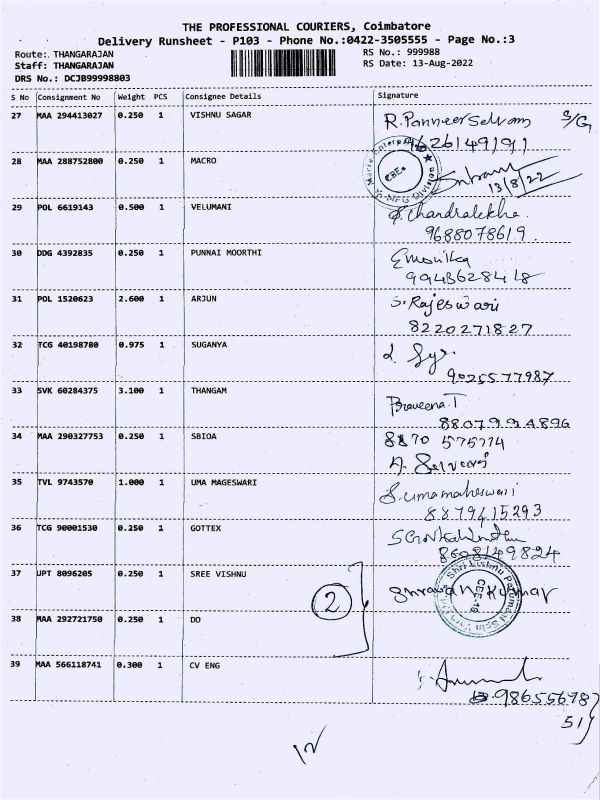 THE PROFESSIONAL COURIERS, Coimbatore
Delivery Runsheet - P103 - Phone No.:0422-3505555 - Page No.:3
Route: THANGARAJAN RS No.: 999988
Staff: THANGARAJAN RS Date: 13-Aug-2022
DRS No.: DCJB99998803
S No Consignment No Weight PCS Consignee Details Signature
27 MAA 294413027 0.250 1 VISHNU SAGAR R. Panneer Selvam S/G
9626149191
28 MAA 288752800 0.250 1 MACRO
13/8/22
29 POL 6619143 0.500 1 VELUMANI S. Chandralekha
9688078619.
30 DDG 4392835 0.250 1 PUNNAI MOORTHI E Monika
9943628418
31 POL 1520623 2.600 1 ARJUN S. Rajeswari
8220271827
32 TCG 40198780 0.975 1 SUGANYA
9025577987
33 SVK 60284375 3.100 1 THANGAM Praveena.T
8807994896
34 MAA 290327753 0.250 1 SBIOA 8870 575774
35 TVL 9743570 1.000 1 UMA MAGESWARI S. umamaheswari
8879415293
36 TCG 90001530 0.250 1 GOTTEX
8608149824
37 UPT 8096205 0.250 1 SREE VISHNU Shravan Kumar
2
38 MAA 292721750 0.250 1 DO
39 MAA 566118741 0.300 1 CV ENG
986556787
51